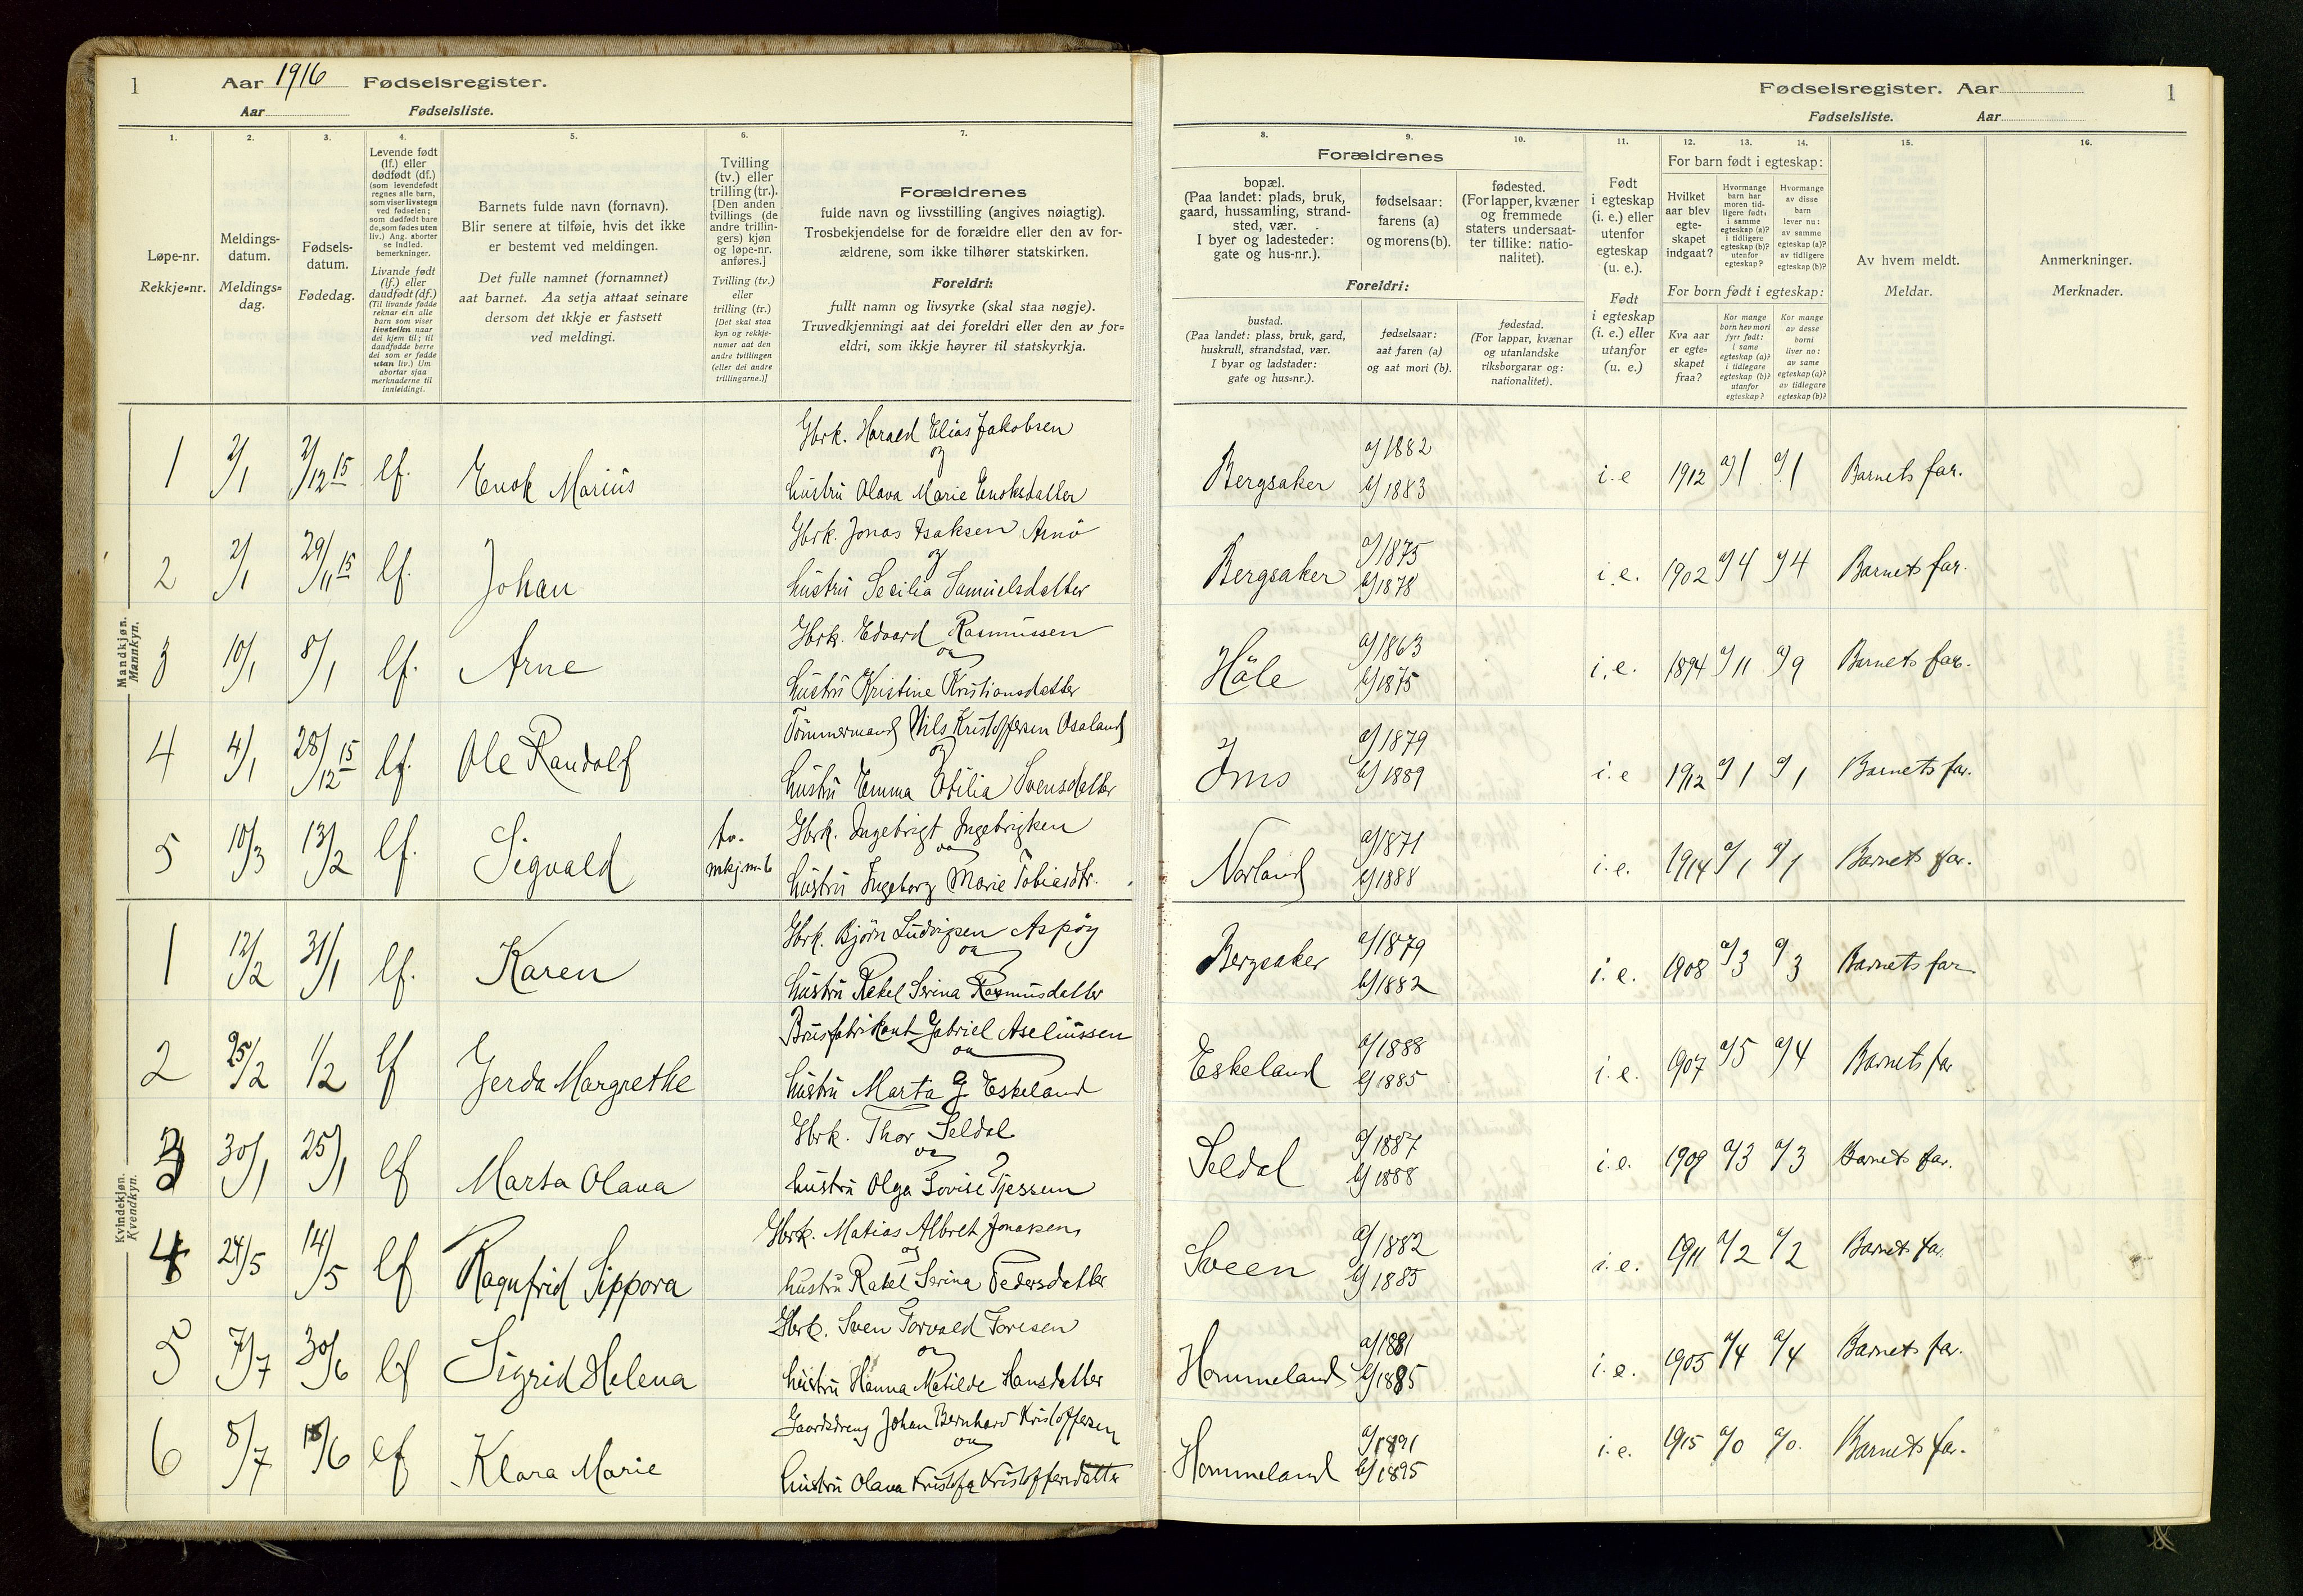 1 Aar 1916 Fødselsregister.
Aar Fødselsliste.
1. 2. 3. 4. 5. 6. 7.
Løpe-nr.
Rekkje=nr.
Meldings-
datum.
Meldings=
dag.
Fødsels-
datum.
Fødedag.
Levende født
(lf.) eller
dødfødt (df.)
(som levendefødt
regnes alle barn,
som viser livstegn
ved fødselen;
som dødfødt bare
de, som fødes uten
liv.) Ang. aborter
se indled.
bemerkninger.
Livande født
(lf.) eller
daudfødt (df.)
(Til livande fødde
reknar ein alle
barn som viser
livsteikn naar
dei kjem til; til
daudfødde berre
dei som er fødde
utan liv.) Um
abortar sjaa
merknaderne til
innleidingi.
Barnets fulde navn (fornavn).
Blir senere at tilføie, hvis det ikke
er bestemt ved meldingen.
Det fulle namnet (fornamnet)
aat barnet. Aa setja attaat seinare
dersom det ikkje er fastsett
ved meldingi.
Tvilling
(tv.) eller
trilling (tr.).
[Den anden
tvillings (de
andre trillin-
gers) kjøn
og løpe-nr.
anføres.]
Tvilling (tv.)
eller
trilling (tr.)
[Det skal staa
kyn og rekkje-
numer aat den
andre tvillingen
(eller dei andre
trillingarne.)]
Forældrenes
fulde navn og livsstilling (angives nøiagtig).
Trosbekjendelse for de forældre eller den av for-
ældrene, som ikke tilhører statskirken.
Foreldri:
fullt namn og livsyrke (skal staa nøgje).
Truvedkjenningi aat dei foreldri eller den av for=
eldri, som ikkje høyrer til statskyrkja.
Fødselsregister. Aar 1
Fødselsliste. Aar
8. 9. 10. 11. 12. 13. 14. 15. 16.
Forældrenes
bopæl.
(Paa landet: plads, bruk,
gaard, hussamling, strand-
sted, vær.
I byer og ladesteder:
gate og hus-nr.).
fødselsaar:
farens (a)
og morens (b).
fødested.
(For lapper, kvæner
og fremmede
staters undersaat-
ter tillike: natio-
nalitet).
Foreldri:
bustad.
(Paa landet: plass, bruk, gard,
huskrull, strandstad, vær.
I byar og ladstader:
gate og hus=nr.).
fødselsaar:
aat faren (a)
og aat mori (b).
fødestad.
(For lappar, kvænar
og utanlandske
riksborgarar og:
nationalitet).
Født
i egteskap
(i. e.) eller
utenfor
egteskap
(u. e.).
Født
i egteskap
(i. e.) eller
utanfor
(u. e.)
For barn født i egteskap:
Hvilket
aar blev
egte-
skapet
indgaat?
Hvormange
barn har
moren tid-
ligere født:
i samme
egteskap (a)?
i tidligere
egteskap (b)?
utenfor
egteskap?
Hvormange
av disse
barn
lever nu:
av samme
egteskap (a)?
av tidligere
egteskap (b)?
For born født i egteskap:
Kva aar
er egte=
skapet
fraa?
Kor mange
born hev mori
fyrr født:
i same
egteskap (a)?
i tidlegare
egteskap (b)?
utanfor
egteskap?
Kor mange
av desse
borni
liver no:
av same
egteskap (a)?
av tidlegare
egteskap (b)?
Av hvem meldt.
Meldar.
Anmerkninger.
Merknader.
Mandkjøn.
Mannkyn.
1 2/1 2/12 15 lf. Enok Marius Gbrk. Harald Elias Jakobsen
og
hustru Olava Marie Enoksdatter Bergsaker a/1882 b/1883 i.e 1912 a/1 a/1 Barnets far.
2 2/1 29/11 15 lf. Johan Gbrk. Jonas Isaksen Arnø
og
hustru Secilia Samuelsdatter Bergsaker a/1875 b/1878 i.e. 1902 a/4 a/4 Barnets far.
3 10/1 8/1 lf. Arne Gbrk. Edvard Rasmussen
og
hustru Kristine Kristiansdatter Håle a/1863 b/1875 i.e. 1894 a/11 a/9 Barnets far.
4 4/1 28/12 15 lf. Ole Randolf Tømmermand Nils Kristoffersen Osaland
og
hustru Emma Otilia Svensdatter Ims a/1879 b/1889 i.e 1912 a/1 a/1 Barnets far.
5 10/3 13/2 lf. Sigvald tv. mkj. nr 6 Gbrk. Ingebrigt Ingebrigtsen
og
hustru Ingeborg Marie Tobiasdtr. Norland a/1871 b/1888 i.e. 1914 a/1 a/1 Barnets far.
Kvindekjøn.
Kvendkyn.
1 12/2 31/1 lf. Karen Gbrk. Bjørn Ludvigsen Aspøy
og
hustru Rakel Serina Rasmusdatter Bergsaker a/1879 b/1882 i.e. 1908 a/3 a/3 Barnets far
2 25/2 1/2 lf Gerda Margrethe Brusfabrikant Gabriel Aseliussen
og
hustru Marta G Eskeland Eskeland a/1888 b/1885 i.e. 1907 a/5 a/4 Barnets far
3 30/1 25/1 lf Marta Olava Gbrk. Thor Seldal
og
hustru Olga Lovise Tjessem Seldal a/1887 b/1888 i.e. 1909 a/3 a/3 Barnets far.
4 24/5 14/5 lf Ragnfrid Sippora Gbrk. Matias Albret Jonassen
og
hustru Rakel Serina Pedersdatter Sveen a/1882 b/1885 i.e. 1911 a/2 a/2 Barnets far.
5 7/7 30/6 lf Sigrid Helena Gbrk. Sven Torvald Toresen
og
hustru Hanna Matilde Hansdatter Hommeland a/1881 b/1885 i.e. 1905 a/4 a/4 Barnets far.
6 8/7 18/6 lf Klara Marie Gaardsdreng Johan Bernhard Kristoffersen
og
hustru Olava Kristofa Kristoffersdatter Hommeland a/1891 b/1895 i.e. 1915 a/0 a/0. Barnets far.